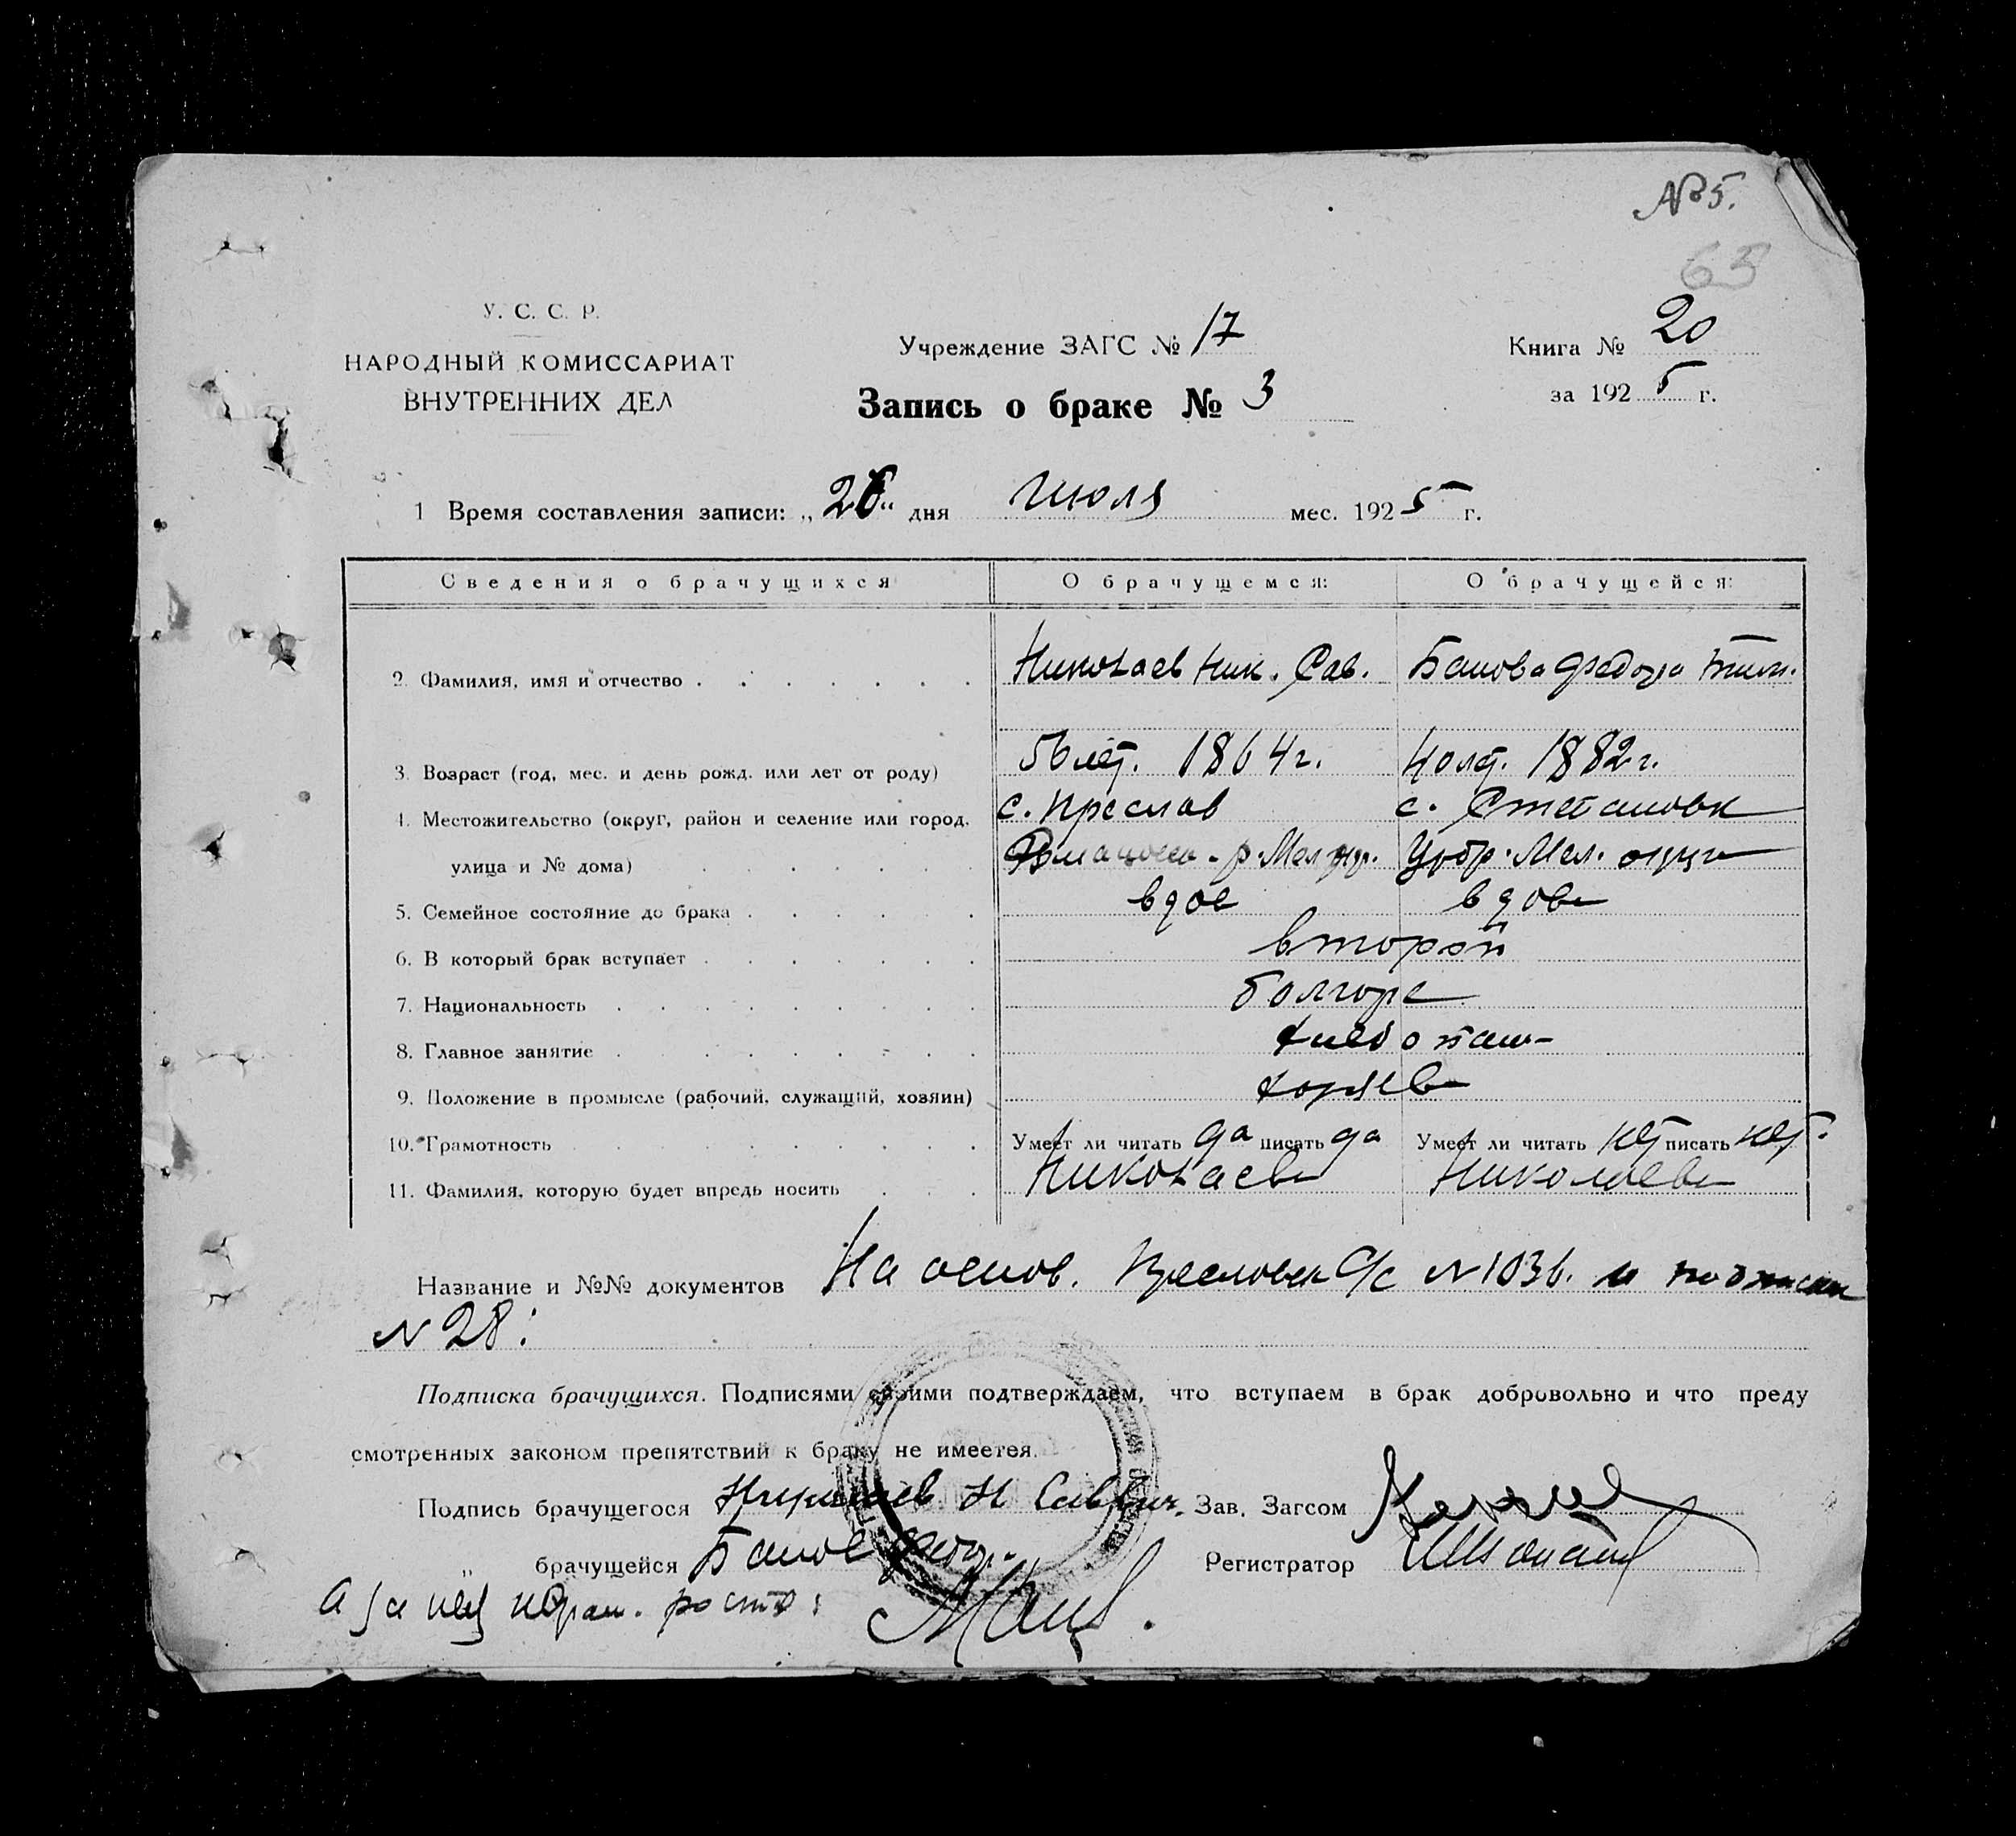 № 5.
65
У. С. С. Р.
НАРОДНЫЙ КОМИССАРИАТ
ВНУТРЕННИХ ДЕЛ
Учреждение ЗАГС № 17
Запись о браке № 3
Книга № 20
за 1925 г.
1 Время составления записи: „26“ дня Июля мес. 1925 г.
Сведения о брачущихся О брачущемся: О брачущейся:
2. Фамилия, имя и отчество Николаев Ник. Сав. Банова Федора
3. Возраст (год, мес. и день рожд. или лет от роду) лет. 1864 г. 1882 г.
4. Местожительство (округ, район и селение или город, с. Преслав с. Степановк
улица и № дома) р. Мел. окр. Мел. округа
5. Семейное состояние до брака вдов вдова
6. В который брак вступает второй
7. Национальность болгаре
8. Главное занятие хлебопаш-
9. Положение в промысле (рабочий, служащий, хозяин)
10. Грамотность Умеет ли читать да писать да Умеет ли читать нет писать нет.
11. Фамилия, которую будет впредь носить Николаев Николаева
Название и №№ документов На основ. Преславск С/с № 1036. и подписки
№ 28.
Подписка брачущихся. Подписями своими подтверждаем, что вступаем в брак добровольно и что преду
смотренных законом препятствий к браку не имеется.
Подпись брачущегося Николаев Н Саввич. Зав. Загсом
„ брачущейся Банова Федор. Регистратор
А за неё